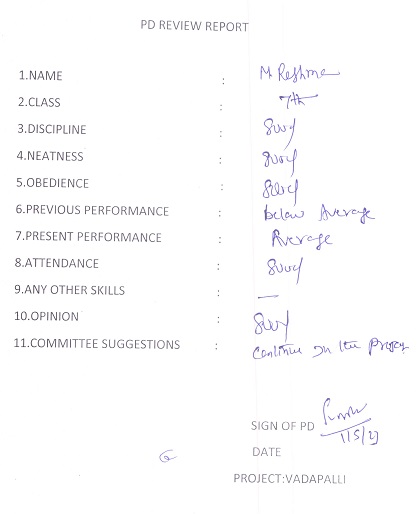 PD REVIEW REPORT
1.NAME : M Reshma
2.CLASS : 7th
3.DISCIPLINE : Good
4.NEATNESS : Good
5.OBEDIENCE : Good
6.PREVIOUS PERFORMANCE : below Average
7.PRESENT PERFORMANCE : Average
8.ATTENDANCE : Good
9.ANY OTHER SKILLS : —
10.OPINION : Good
11.COMMITTEE SUGGESTIONS : Continue in the
SIGN OF PD
DATE
PROJECT:VADAPALLI